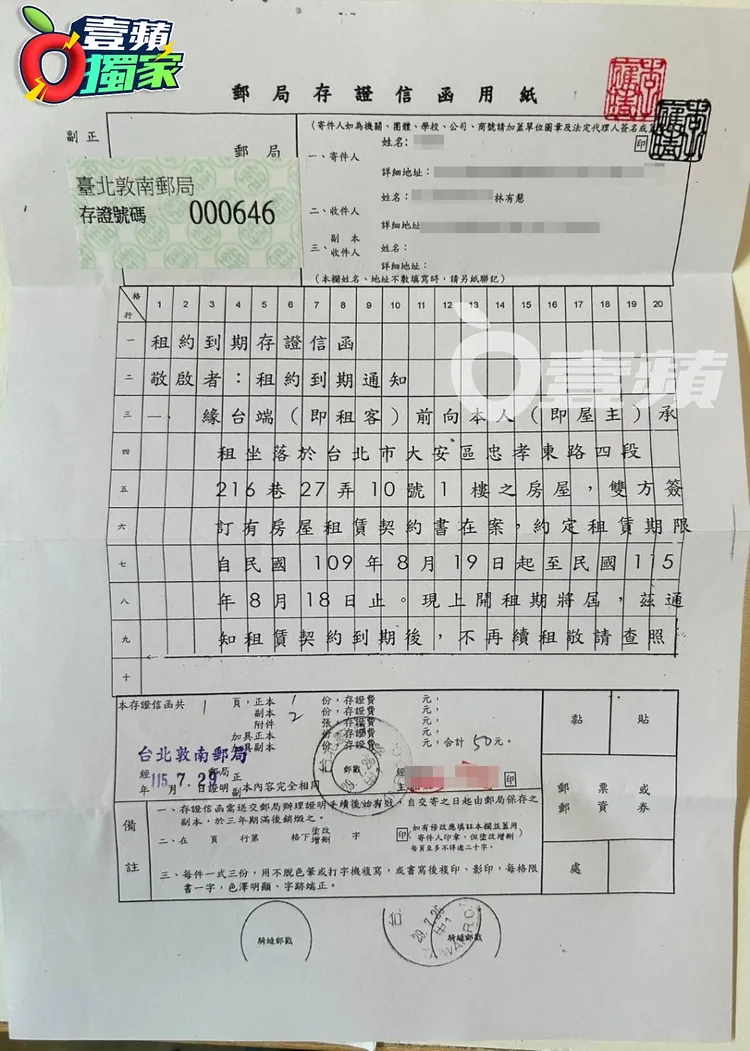 壹蘋
獨家
郵局存證信函用紙
副正
郵局
臺北敦南郵局
存證號碼 000646
(寄件人如為機關、團體、學校、公司、商號請加蓋單位圖章及法定代理人簽名或
印
一、寄件人 姓名：
詳細地址：
二、收件人 姓名： 林有慧
詳細地址
三、副本收件人 姓名：
詳細地址：
(本欄姓名、地址不敷填寫時，請另紙聯記)
格行 1 2 3 4 5 6 7 8 9 10 11 12 13 14 15 16 17 18 19 20
一 租約到期存證信函
二 敬啟者：租約到期通知
三 一、緣台端（即租客）前向本人（即屋主）承
四 租坐落於台北市大安區忠孝東路四段
五 216巷27弄10號1樓之房屋，雙方簽
六 訂有房屋租賃契約書在案，約定租賃期限
七 自民國109年8月19日起至民國115
八 年8月18日止。現上開租期將屆，茲通
九 知租賃契約到期後，不再續租敬請查照
十
壹蘋
本存證信函共 1 頁，正本 1 份，存證費 元，
副本 2 份，存證費 元，
附件 張，存證費 元，
加具正本 份，存證費 元，
加具副本 份，存證費 元，合計 50元。
台北敦南郵局
經 郵局
115.7.29
年 月 日證明 正副 本內容完全相同
郵戳
經
印
黏 貼
郵 票 或
郵 資 券
處
備註
一、存證信函需送交郵局辦理證明手續後始有效，自交寄之日起由郵局保存之
副本，於三年期滿後銷燬之。
二、在 頁 行第 格下 塗改增刪 字 印 (如有修改應填註本欄並蓋用寄件人印章，但塗改增刪每頁至多不得逾二十字。)
三、每件一式三份，用不脫色筆或打字機複寫，或書寫後複印、影印，每格限
書一字，色澤明顯、字跡端正。
騎縫郵戳
騎縫郵戳